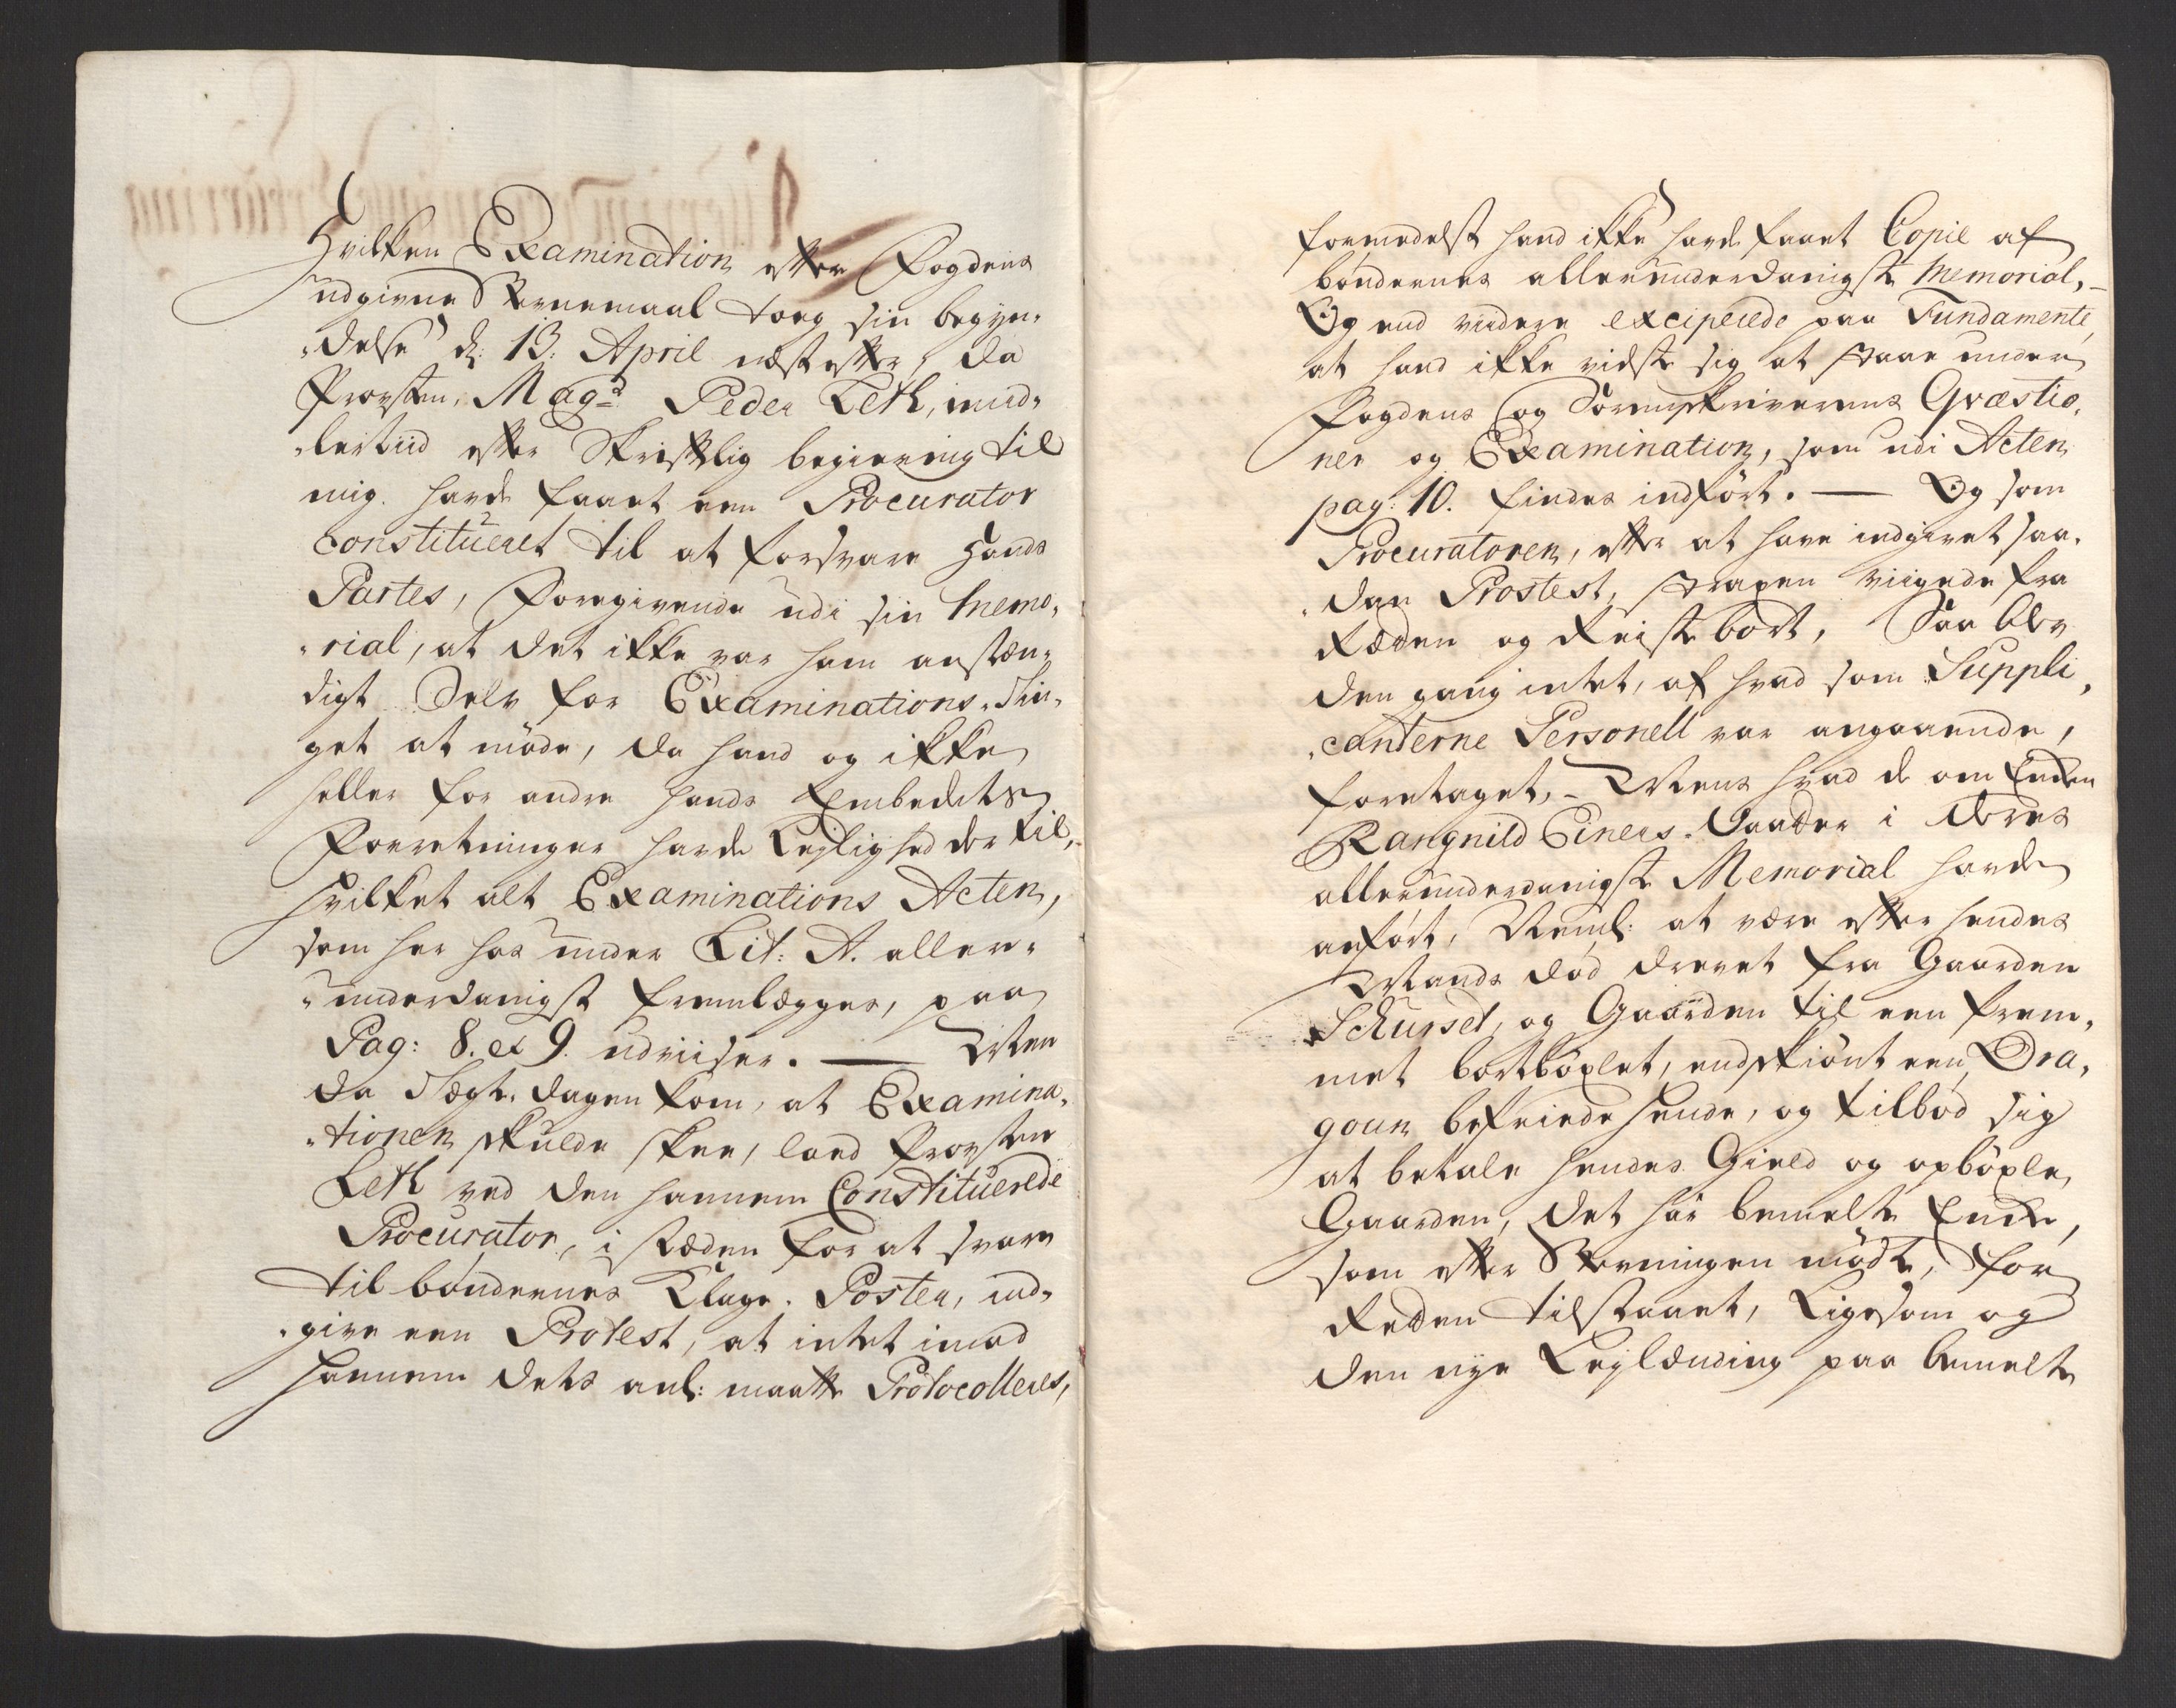 Hvilken Examination efter Fogdens
udgivne Stevnemaal toeg sin begyn-
delse d: 13: April nest efter, da
Provsten, Mag: Peder Leth, imid-
lertiid efter Skriftlig begiering til
mig, havde faaet een Procurator
Constitueret til at forsvare hands
Partes, Foregivende udi sin Memo-
rial, at det ikke var ham anstæn-
digt Selv for Examinations-Tin-
get at møde, da hand og ikke
heller for andre hands Embedets
Forretninger havde Lejlighed der til,
hvilket alt Examinations Acten,
som her hos under Lit: A. aller-
underdanigst fremlægges, paa
Pag: 8. et 9. udviiser. — Men
da Tægte-dagen kom, at Examina-
tionen skulde skee, loed Provsten
Leth ved den hannem Constituerede
Procurator, i stæden for at svare
til bøndernes Klage-Poster, ind-
give een Protest, at intet imod
hannem dets anl: maatte Protocolleres,
formedelst hand ikke havde faaet Copie af
bøndernes allerunderdanigste Memorial, –
Og end viidere exciperede paa Fundamente,
at hand ikke vidste sig at staae under
Fogdens og Sorenskriverens Qvæstio-
ner og Examination, som udi Acten
pag: 10. findes indført. — Og som
Procuratoren, efter at have indgivet saa-
dan Prostest, strapen viigede fra
Ræden og Reiste bort, Saa blev
den gang intet, af hvad som Suppli-
canterne Personell var angaaende,
foretaget, – Mens hvad de om Enken
Rangnild Einers-Daatter i deres
allerunderdanigste Memorial havde
anført, Neml: at være efter hendes
Mands død drevet fra Gaarden
Schurset, og Gaarden til een frem-
met bortbøxlet, endskiønt een Dra-
goun befriede hende, og tilbød sig
at betale hendes Gield og opbøxle
Gaarden, det har bemelte Enke,
som efter Stevningen mødte, for
Retten tilstaaet, Ligesom og
den nye Leylænding paa bemelte